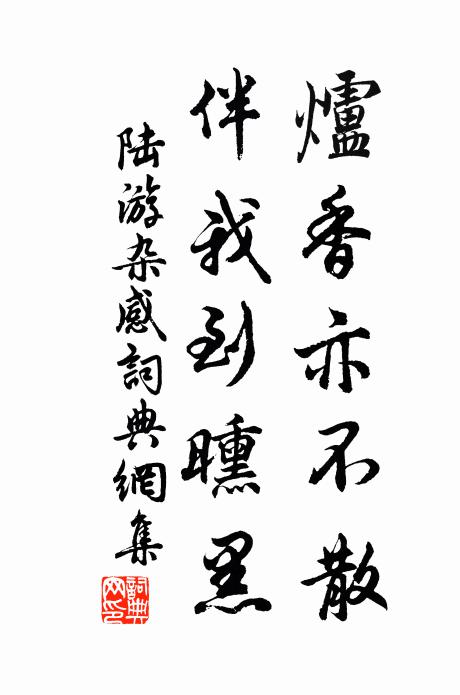 爐香亦不散
伴我到曛黑
陆游杂感詞典網集
詞典网印